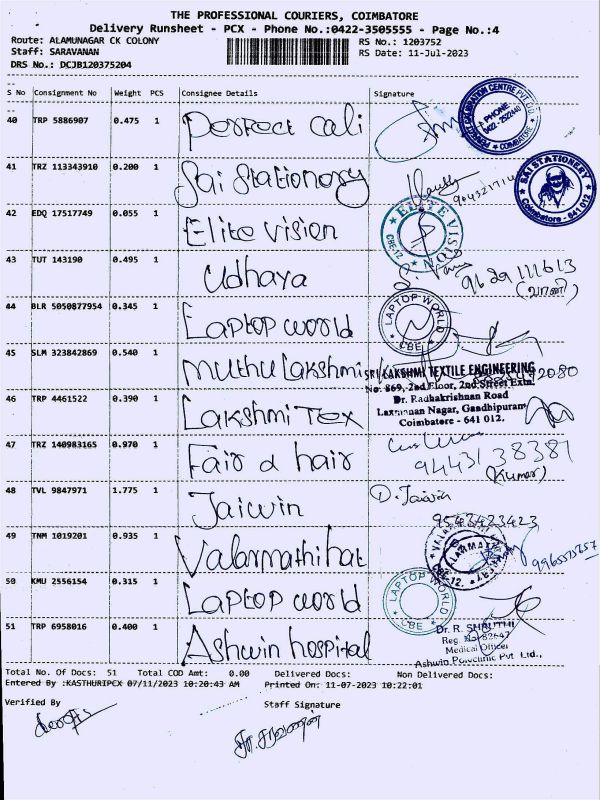 THE PROFESSIONAL COURIERS, COIMBATORE
Delivery Runsheet - PCX - Phone No.:0422-3505555 - Page No.:4
Route: ALAMUNAGAR CK COLONY
RS No.: 1203752
Staff: SARAVANAN
RS Date: 11-Jul-2023
DRS No.: DCJB120375204
S No Consignment No Weight PCS Consignee Details Signature
40 TRP 5886907 0.475 1 Perfect cali
PHONE
COIMBATORE
41 TRZ 113343910 0.200 1 Sai Stationery
SAI STATIONERY
Coimbatore - 641 012
42 EDQ 17517749 0.055 1 Elite vision
ELITE VISION
CBE-12
43 TUT 143190 0.495 1 Udhaya
9629111613
(வாணி)
44 BLR 5050877954 0.345 1 Laptop world
LAPTOP WORLD
CBE
45 SLM 323842869 0.540 1 muthu Lakshmi
SRI LAKSHMI TEXTILE ENGINEERING
No. 869, 2nd Floor, 2nd Street Extn.
Dr. Radhakrishnan Road
Laxmanan Nagar, Gandhipuram
Coimbatore - 641 012.
46 TRP 4461522 0.390 1 Lakshmi Tex
47 TRZ 140983165 0.970 1 Fair & hair
9443138381
(Kumar)
48 TVL 9847971 1.775 1 Jaiwin
D. Jaiwin
9543423423
49 TNM 1019201 0.935 1 Valarmathi hat
CBE-12.
9965575257
50 KMU 2556154 0.315 1 Laptop world
LAPTOP WORLD
CBE
51 TRP 6958016 0.400 1 Ashwin hospital
Dr. R. SHRUTHI
Reg. No. 82647
Medical Officer
Ashwin Polyclinic Pvt Ltd.,
Total No. Of Docs: 51 Total COD Amt: 0.00 Delivered Docs: Non Delivered Docs:
Entered By :KASTHURIPCX 07/11/2023 10:20:43 AM Printed On: 11-07-2023 10:22:01
Verified By
Staff Signature
சா. சரவணன்